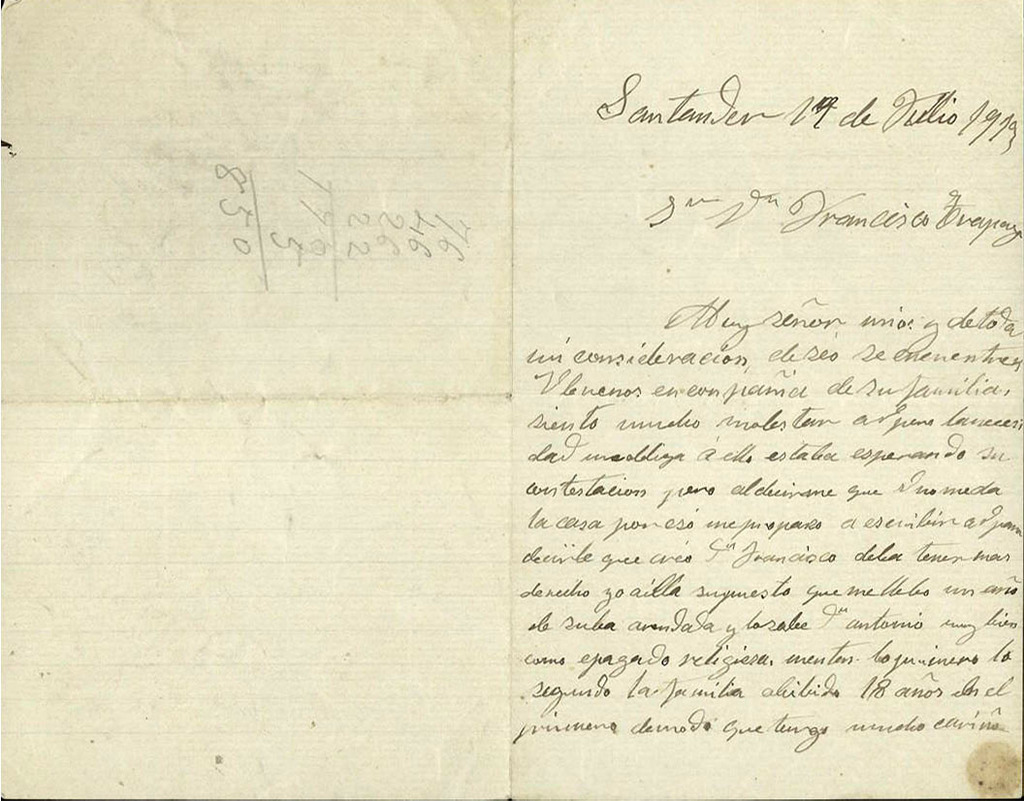 Santander 14 de Jullio 1913
Sr Dn Francisco Trapaga
Muy señor mio: y de toda
mi consideracion, deséo se encuentren
V buenos en compañia de su familia,
siento mucho molestar a V pero la necesi
dad me obliga á ello estaba esperando su
contestacion pero al decirme que V no me da
la casa por eso me propaso a escribir a V para
decirle que créo Dn Francisco deba tener mas
derecho yo a illa supuesto que me llebo un año
de suba arendada y lo sabe Dn antonio muy bien
como e pagado religiosa mente lo primero lo
segundo la familia abibido 18 años en el
primero de modo que tengo mucho cariño